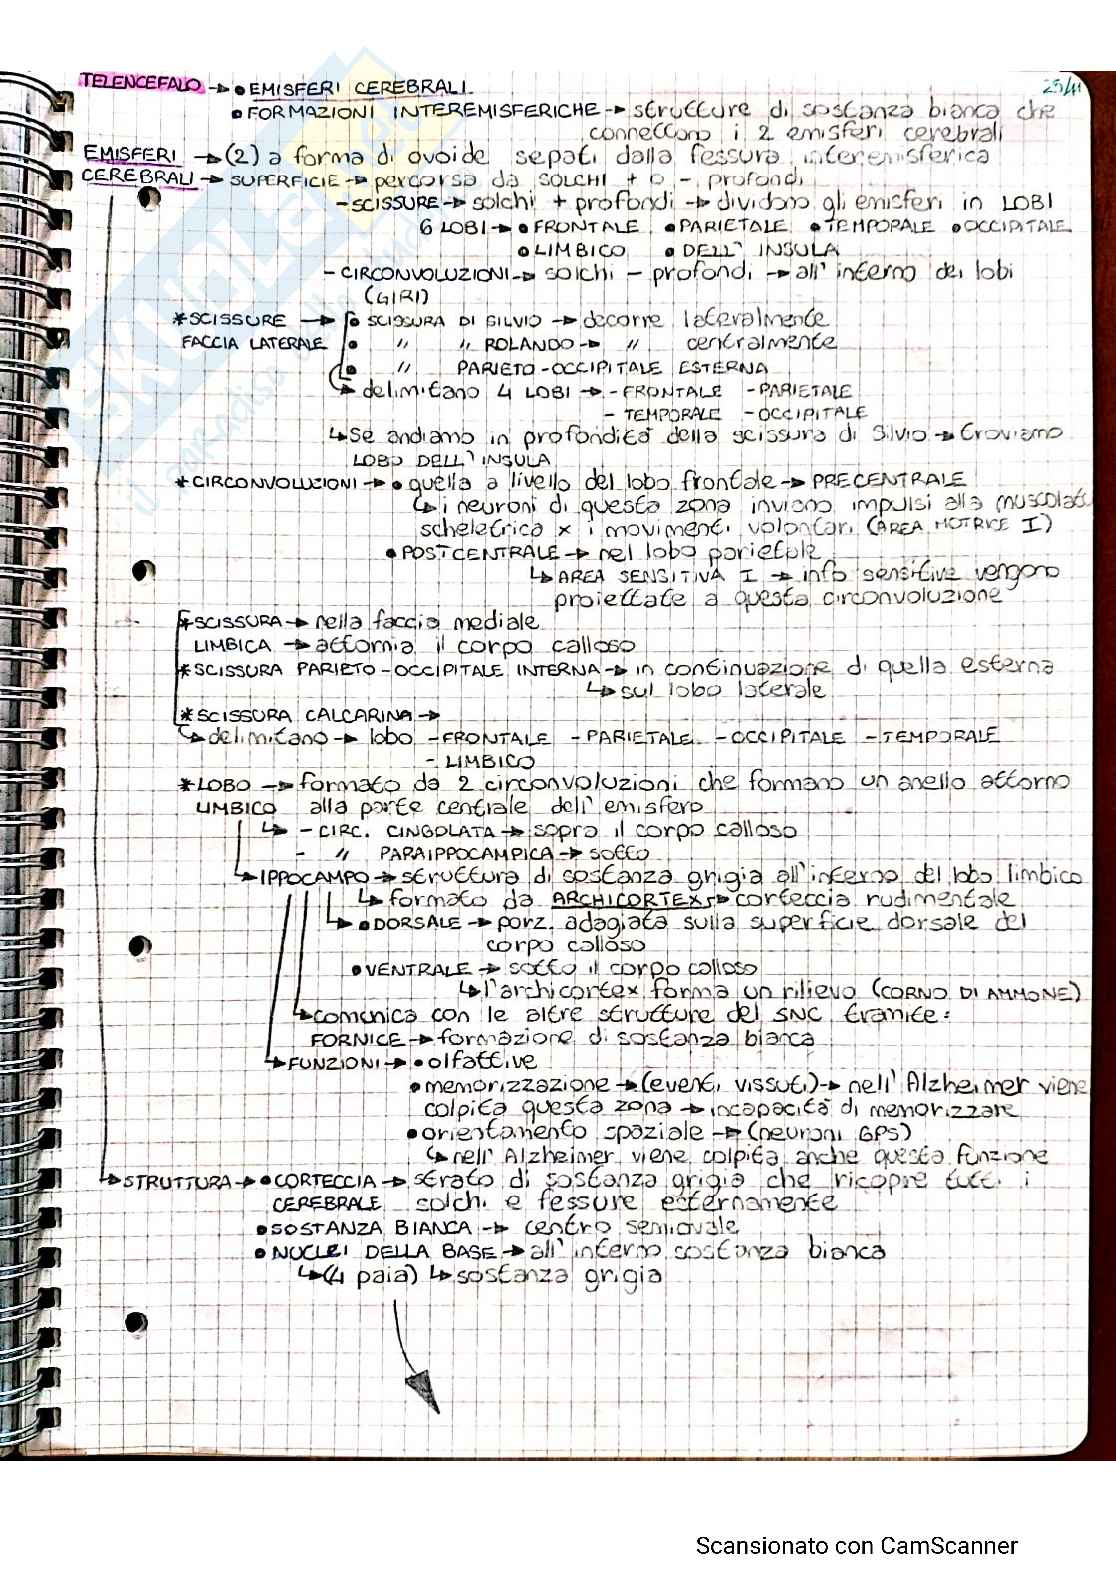 25/11
TELENCEFALO → • EMISFERI CEREBRALI
• FORMAZIONI INTEREMISFERICHE → strutture di sostanza bianca che
connettono i 2 emisferi cerebrali
EMISFERI → (2) a forma di ovoide sepati dalla fessura interemisferica
CEREBRALI → SUPERFICIE → percorsa da SOLCHI + o - profondi
- SCISSURE → solchi + profondi → dividono gli emisferi in LOBI
6 LOBI → • FRONTALE • PARIETALE • TEMPORALE • OCCIPITALE
• LIMBICO • DELL'INSULA
- CIRCONVOLUZIONI → solchi - profondi → all'interno dei lobi
(GIRI)
* SCISSURE → • SCISSURA DI SILVIO → decorre lateralmente
FACCIA LATERALE • " " ROLANDO → " centralmente
• " PARIETO-OCCIPITALE ESTERNA
↳ delimitano 4 LOBI → - FRONTALE - PARIETALE
- TEMPORALE - OCCIPITALE
↳ Se andiamo in profondità della scissura di Silvio → troviamo
LOBO DELL'INSULA
* CIRCONVOLUZIONI → • quella a livello del lobo frontale → PRECENTRALE
↳ i neuroni di questa zona inviano impulsi alla muscolat
scheletrica x i movimenti volontari (AREA MOTRICE I)
• POSTCENTRALE → nel lobo parietale
↳ AREA SENSITIVA I → info sensitive vengono
proiettate a questa circonvoluzione
* SCISSURA → nella faccia mediale
LIMBICA → attornia il corpo calloso
* SCISSURA PARIETO-OCCIPITALE INTERNA → in continuazione di quella esterna
↳ sul lobo laterale
* SCISSURA CALCARINA →
↳ delimitano → lobo - FRONTALE - PARIETALE - OCCIPITALE - TEMPORALE
- LIMBICO
* LOBO → formato da 2 circonvoluzioni che formano un anello attorno
LIMBICO alla parte centrale dell'emisfero
↳ - CIRC. CINGOLATA → sopra il corpo calloso
- " PARAIPPOCAMPICA → sotto
↳ IPPOCAMPO → struttura di sostanza grigia all'interno del lobo limbico
↳ formato da ARCHICORTEX → corteccia rudimentale
↳ • DORSALE → porz. adagiata sulla superficie dorsale del
corpo calloso
• VENTRALE → sotto il corpo calloso
↳ l'archicortex forma un rilievo (CORNO DI AMMONE)
↳ comunica con le altre strutture del SNC tramite:
FORNICE → formazione di sostanza bianca
↳ FUNZIONI → • olfattive
• memorizzazione → (eventi vissuti) → nell'Alzheimer viene
colpita questa zona → incapacità di memorizzare
• orientamento spaziale → (neuroni GPS)
↳ nell'Alzheimer viene colpita anche questa funzione
↳ STRUTTURA → • CORTECCIA → strato di sostanza grigia che ricopre tutti i
CEREBRALE solchi e fessure esternamente
• SOSTANZA BIANCA → centro semiovale
• NUCLEI DELLA BASE → all'interno sostanza bianca
↳ (4 paia) ↳ sostanza grigia
Scansionato con CamScanner